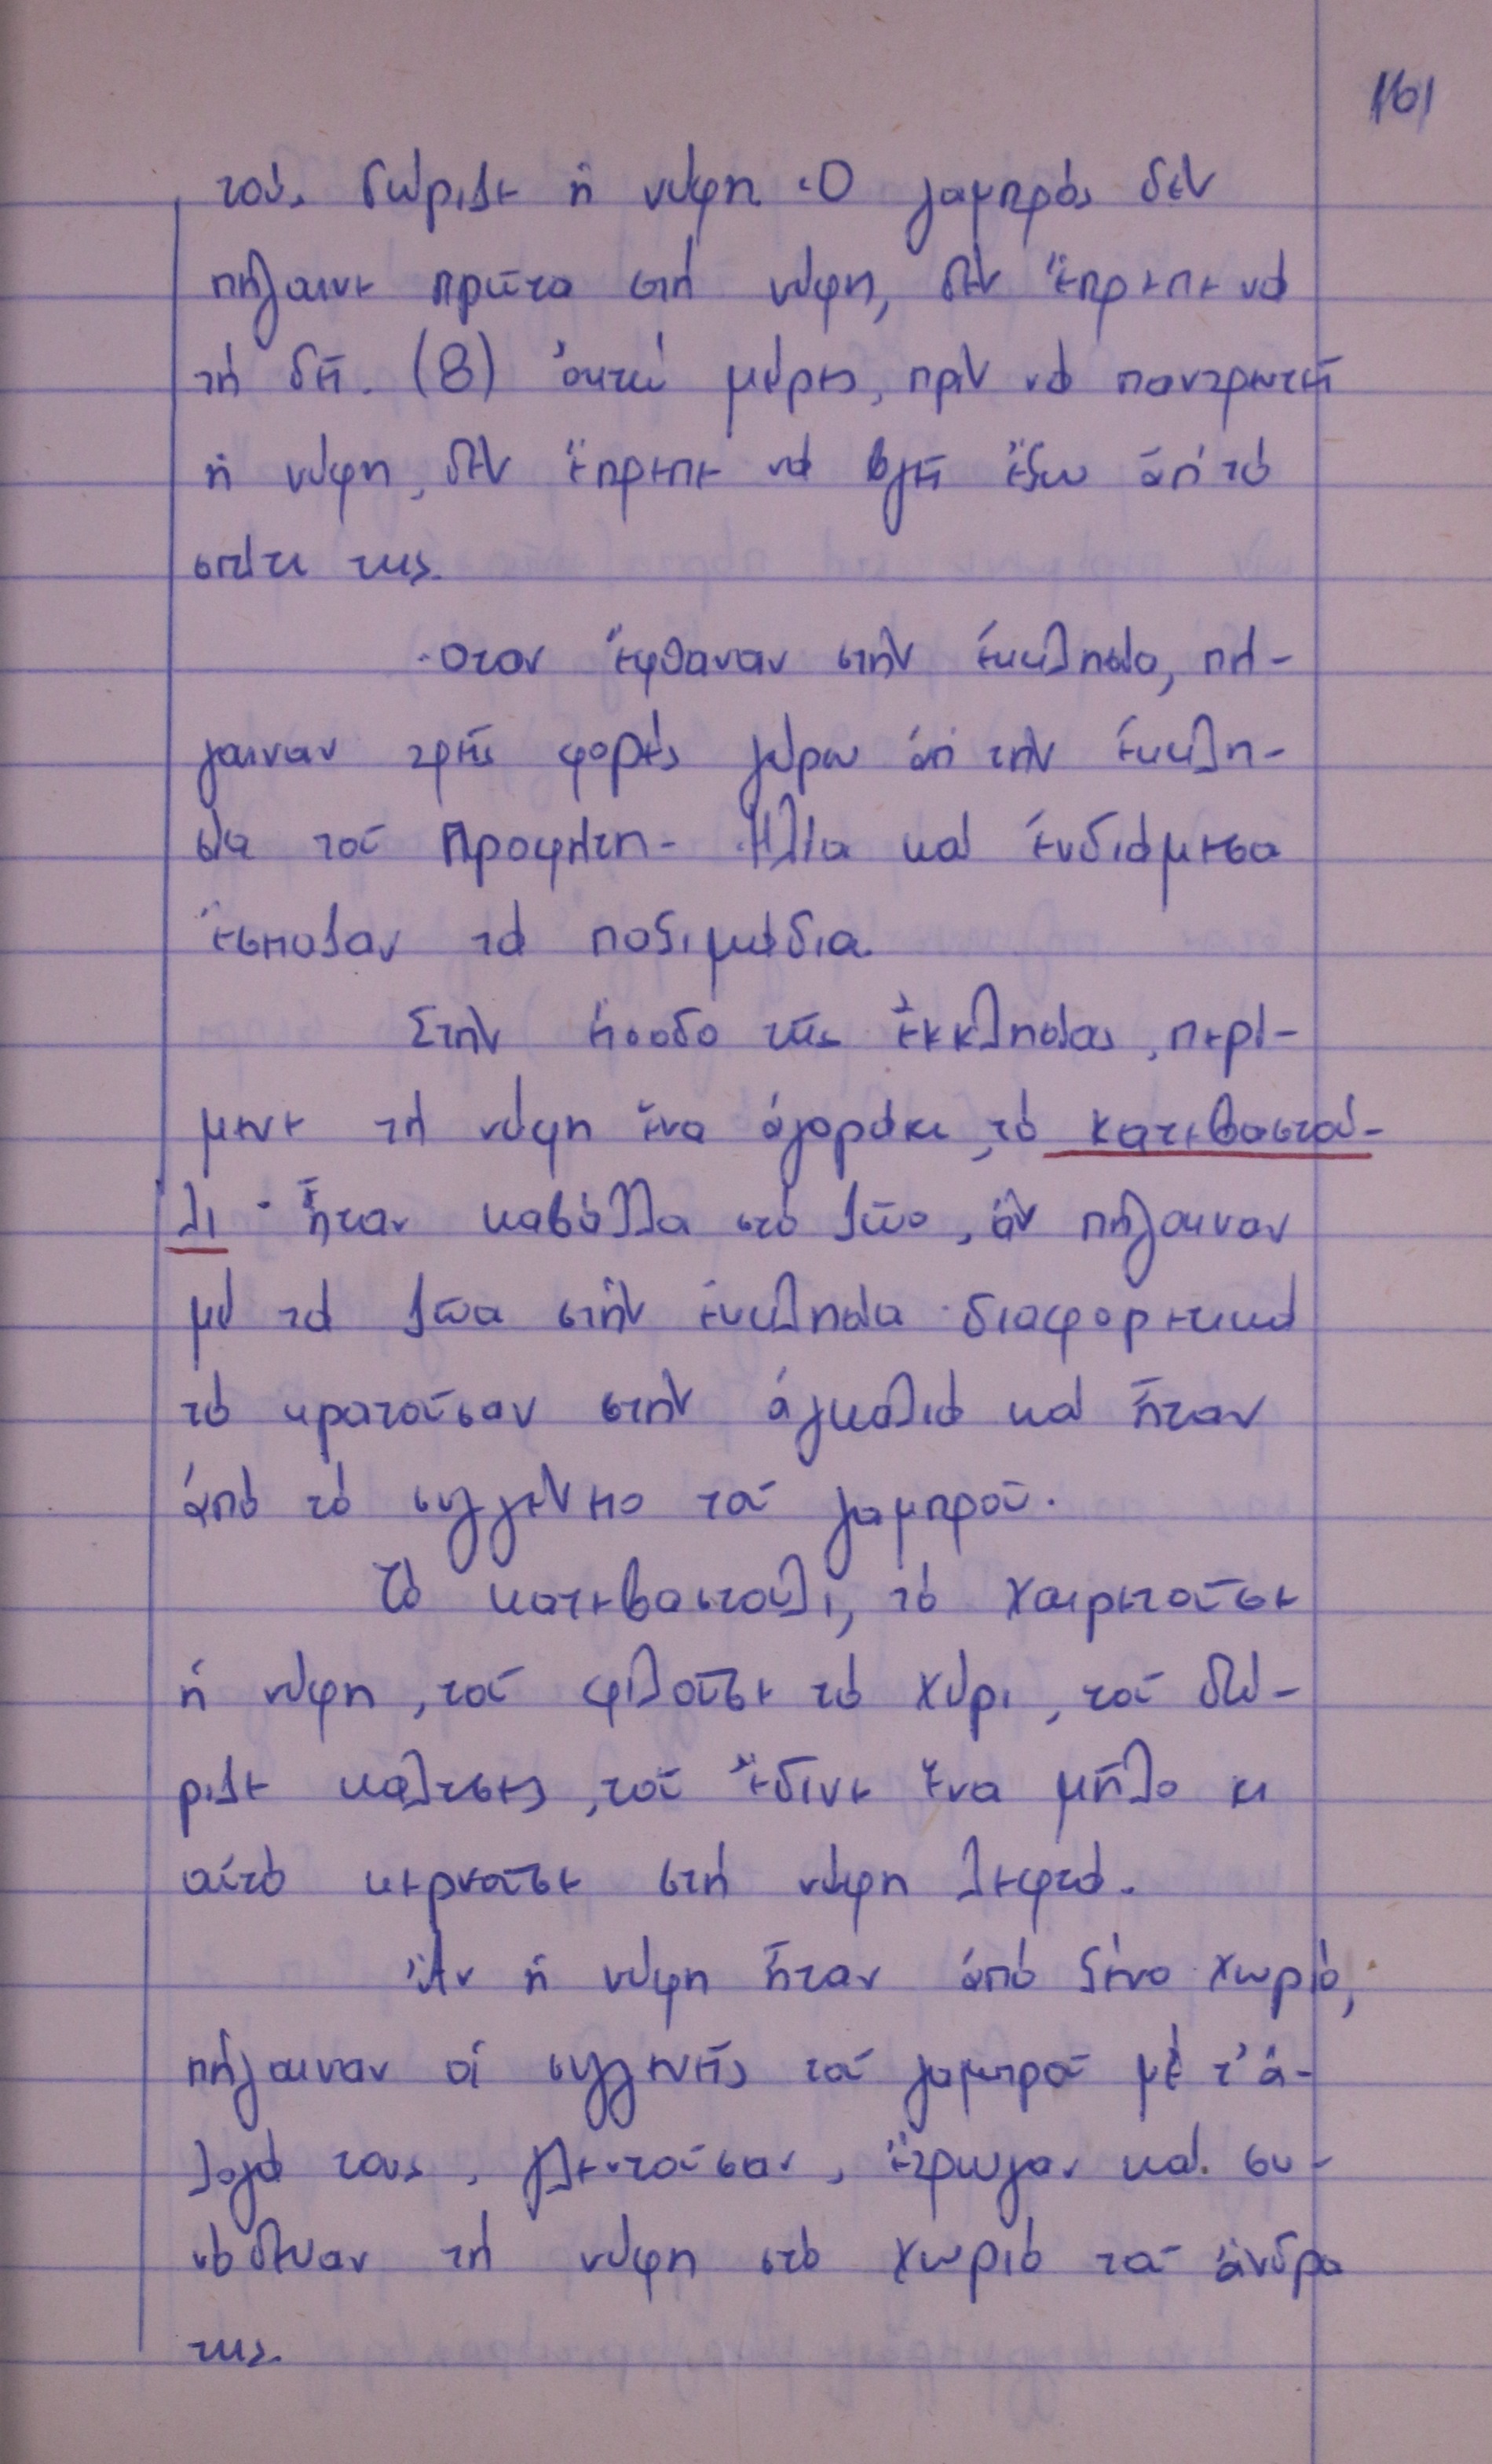 161
τούς δώριζε ἡ νύφη. Ὁ γαμπρός δέν
πήγαινε πρῶτα στή νύφη, δέν ἔπρεπε νά
τή δεῖ. (8) ὀκτώ μέρες, πρίν νά παντρευτεῖ
ἡ νύφη, δέν ἔπρεπε νά βγεῖ ἔξω ἀπ' τό
σπίτι της.
Ὅταν ἔφθαναν στήν ἐκκλησία, πή-
γαιναν τρεῖς φορές γύρω ἀπ' τήν ἐκκλη-
σία τοῦ Προφήτη- Ἠλία καί ἐνδιάμεσα
ἔσπαζαν τά παξιμάδια.
Στήν εἴσοδο τῆς ἐκκλησίας, περί-
μενε τή νύφη ἕνα ἀγοράκι, τό κατεβαστού-
λι· ἦταν καβάλλα στό ζῶο, ἄν πήγαιναν
μέ τά ζῶα στήν ἐκκλησία· διαφορετικά
τό κρατοῦσαν στήν ἀγκαλιά καί ἦταν
ἀπό τό συγγένειο τοῦ γαμπροῦ.
Τό κατεβαστούλι, τό χαιρετοῦσε
ἡ νύφη, τοῦ φιλοῦσε τό χέρι, τοῦ δώ-
ριζε κάλτσες, τοῦ ἔδινε ἕνα μῆλο κι
αὐτό κερνοῦσε στή νύφη λεφτά.
Ἄν ἡ νύφη ἦταν ἀπό ξένο χωριό,
πήγαιναν οἱ συγγενεῖς τοῦ γαμπροῦ μέ τ' ἄ-
λογά τους, γλεντοῦσαν, ἔτρωγαν καί συ-
νόδευαν τή νύφη στό χωριό τοῦ ἄνδρα
της.